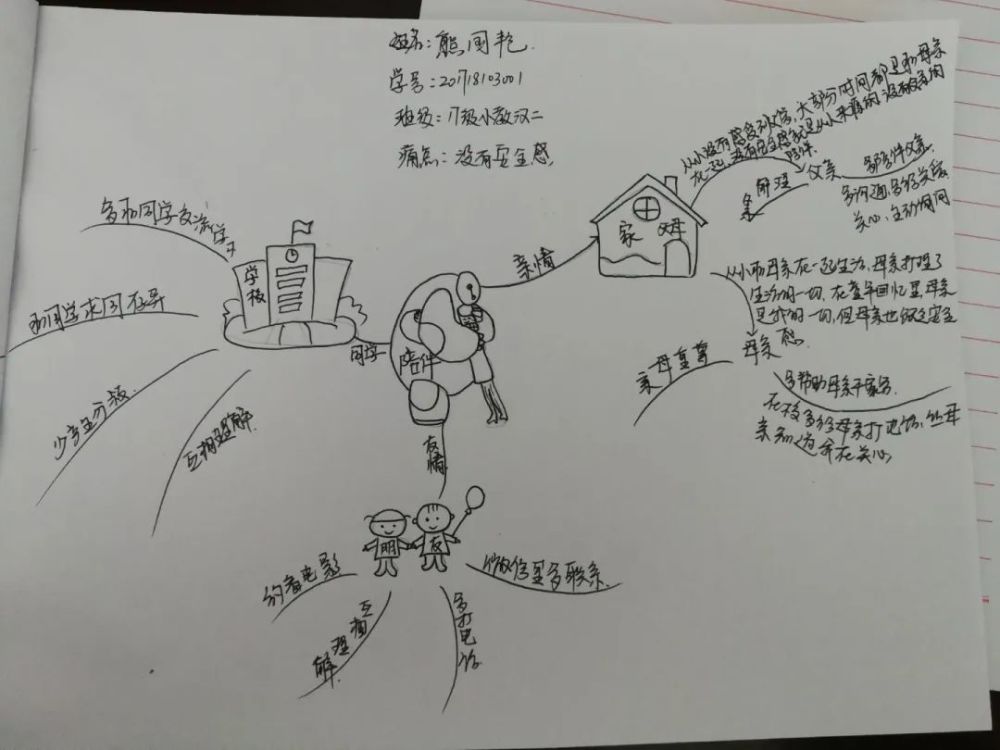 姓名:熊国艳.
学号:201718103001
班级:17级小教汉二
痛点:没有安全感.
陪伴
亲情
家 父母
从小没有感受到父爱,大部分时间都是和母亲
在一起,没有安全感就是从小来的,没有父亲的
陪伴.
父亲
理解
多陪伴父亲
多沟通,多给关爱
关心,主动询问
从小和母亲在一起生活,母亲打理了
生活的一切,在童年回忆里,母亲
是我的一切,但母亲也缺乏安全
感.
母亲
尊重母亲
多帮助母亲干家务.
在校多给母亲打电话,让母
亲知道我在关心
同学
学校
多和同学交流学习
和同学求同存异
少产生分歧.
互相理解.
友情
朋 友
约看电影
互相理解
多打电话
微信里多联系.